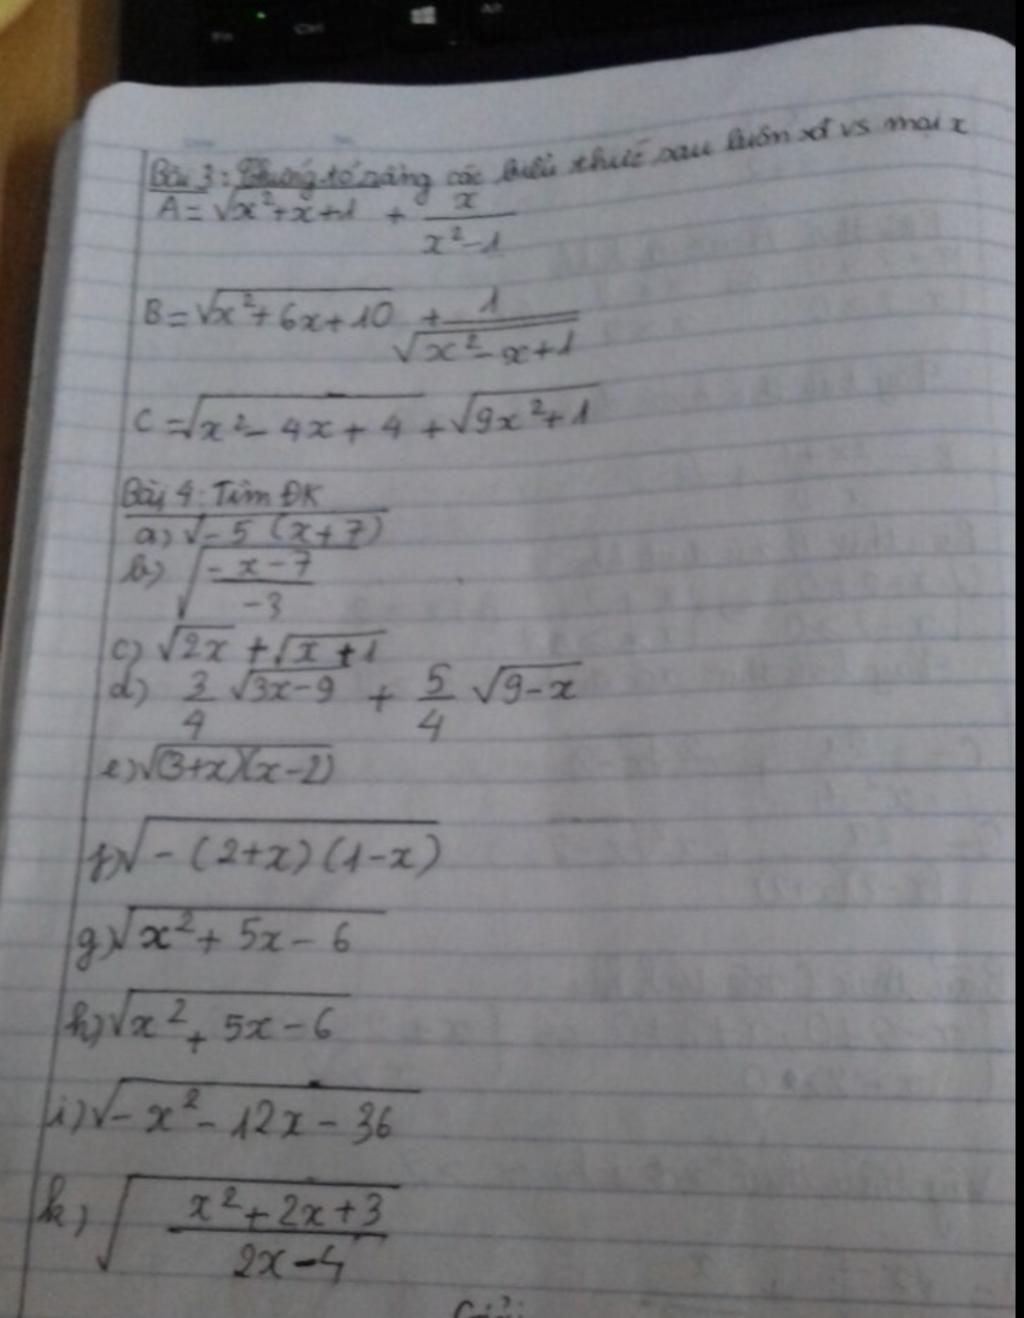 Bài 3: Chứng tỏ rằng các biểu thức sau luôn xđ vs mọi x
A = √x²+x+1 + x/x²-1
B = √x²+6x+10 + 1/√x²-x+1
C = √x²-4x+4 + √9x²+1
Bài 4: Tìm ĐK
a) √-5(x+7)
b) √-x-7/-3
c) √2x + √x+1
d) 3/4 √3x-9 + 5/4 √9-x
e) √(3+x)(x-2)
f) √-(2+x)(1-x)
g) √x²+5x-6
h) √x²+5x-6
i) √-x²-12x-36
k) √x²+2x+3/2x-4
Giải